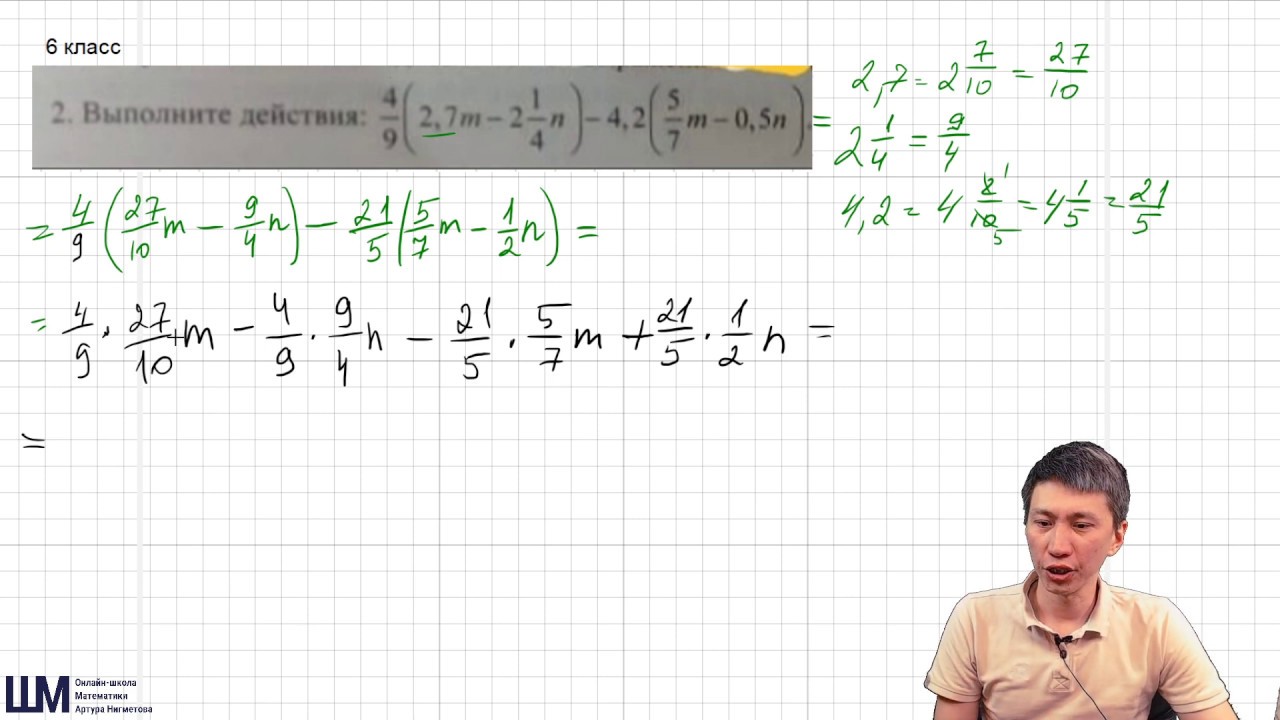 6 класс
2. Выполните действия: 4/9(2,7m − 2 1/4 n) − 4,2(5/7 m − 0,5n) =
2,7 = 2 7/10 = 27/10
2 1/4 = 9/4
4,2 = 4 2/10 = 4 1/5 = 21/5
= 4/9 (27/10 m − 9/4 n) − 21/5 (5/7 m − 1/2 n) =
= 4/9 · 27/10 m − 4/9 · 9/4 n − 21/5 · 5/7 m + 21/5 · 1/2 n =
=
ШМ
Онлайн-школа
Математики
Артура Нигметова